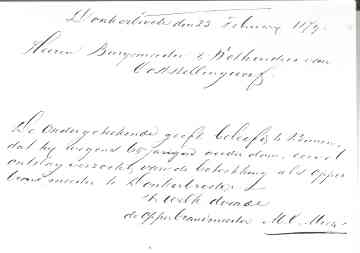 Donkerbroek den 23 February 1879.
Heeren Burgemeester & Wethouders van
Ooststellingwerf.
De Ondergeteekende geeft beleefd te kennen,
dat hij wegens ouderdom, eervol
ontslag verzoekt, van de betrekking als opper
brandmeester te Donkerbroek
't welk doende
de opperbrandmeester M. C.